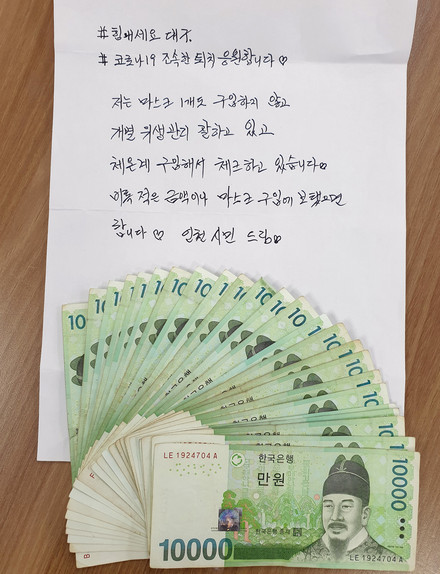 #힘내세요 대구.
# 코로나19 조속한 퇴치 응원합니다♡
저는 마스크 1개도 구입하지 않고
개별 위생관리 잘하고 있고
체온계 구입해서 체크하고 있습니다♡
비록 적은 금액이나 마스크 구입에 보탰으면
합니다♡ 인천 시민 드림♡
LE 1924704 A
한국은행
만원
10000
한국은행 총재
10000
LE 1924704 A